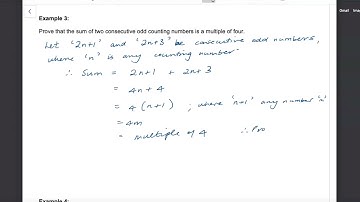 Gmail
Example 3:
Prove that the sum of two consecutive odd counting numbers is a multiple of four.
Let '2n+1' and '2n+3' be consecutive odd numbers,
where 'n' is any counting number.
∴ Sum = 2n+1 + 2n+3
= 4n + 4
= 4 (n+1) ; where 'n+1' any number 'm'
= 4m
= multiple of 4 ∴ Pro
Example 4: